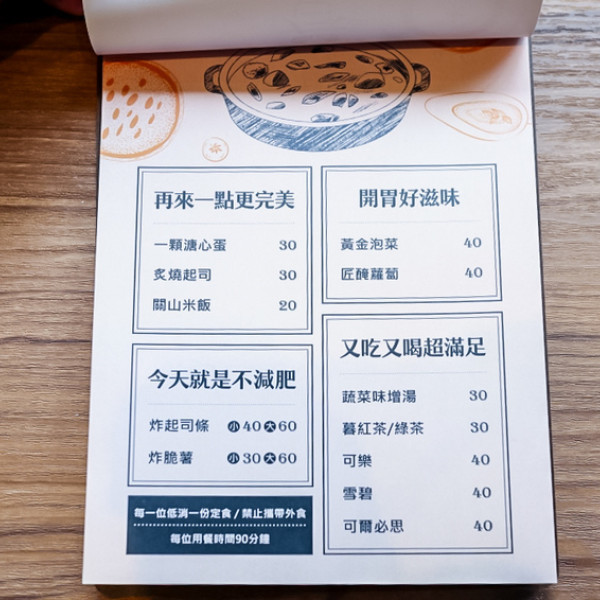 再來一點更完美
一顆溏心蛋 30
炙燒起司 30
關山米飯 20
開胃好滋味
黃金泡菜 40
匠醃蘿蔔 40
今天就是不減肥
炸起司條 小40大60
炸脆薯 小30大60
又吃又喝超滿足
蔬菜味增湯 30
暮紅茶/綠茶 30
可樂 40
雪碧 40
可爾必思 40
每一位低消一份定食/禁止攜帶外食
每位用餐時間90分鐘